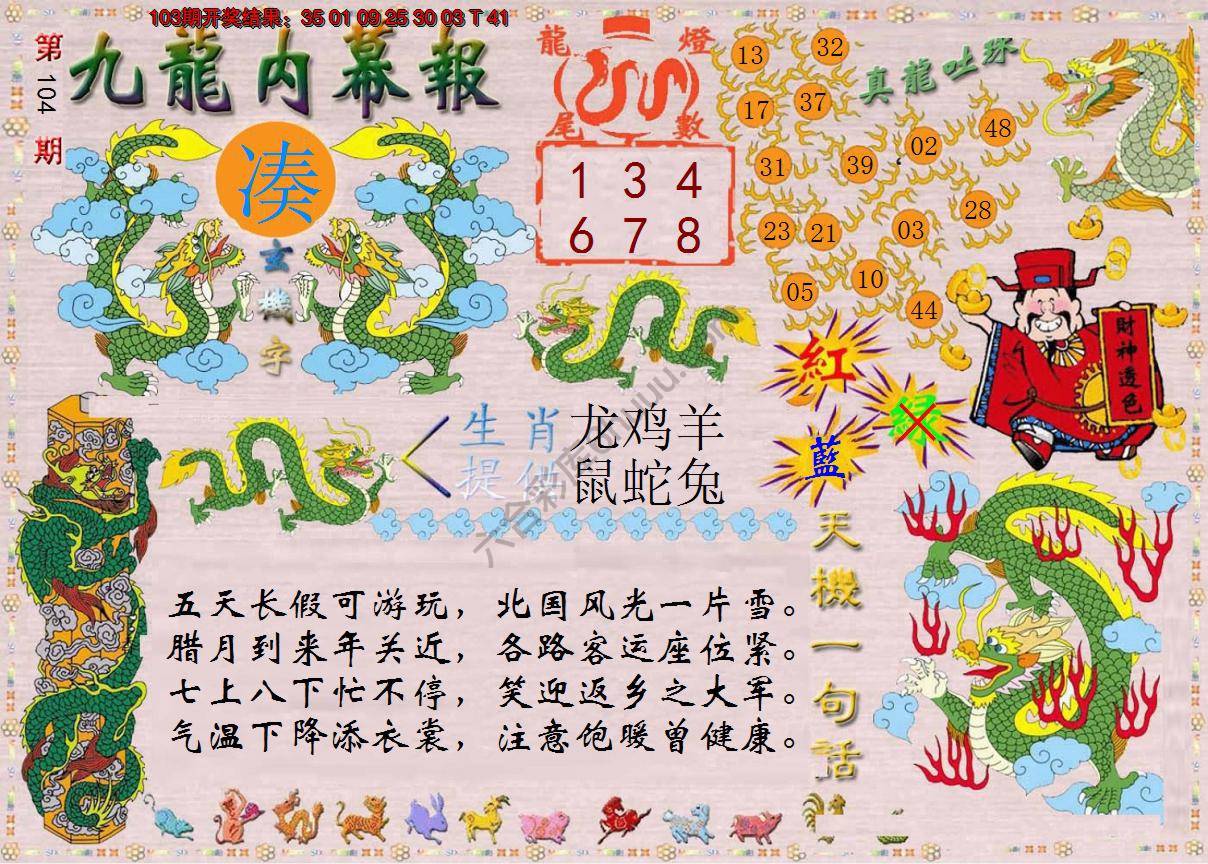 103期开奖结果：35 01 09 25 30 03 T 41
第104期
九龍内幕報
凑
玄機字
龍燈
尾數
1 3 4
6 7 8
真龍吐珠
13
32
17
37
48
02
31
39
28
23
21
03
10
05
44
財神透色
紅
绿
藍
生肖
提供
龙鸡羊
鼠蛇兔
天機一句話
五天长假可游玩，北国风光一片雪。
腊月到来年关近，各路客运座位紧。
七上八下忙不停，笑迎返乡之大军。
气温下降添衣裳，注意饱暖曾健康。